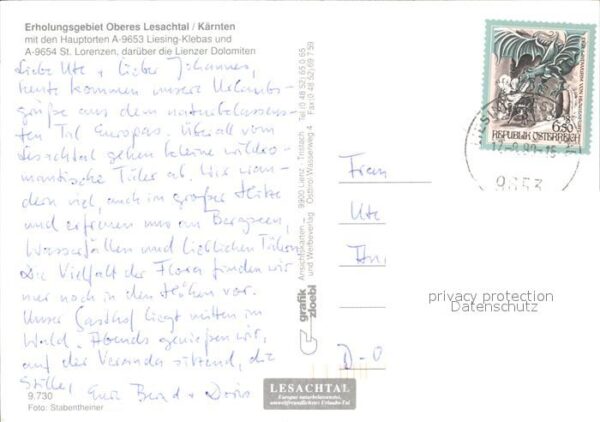 Erholungsgebiet Oberes Lesachtal / Kärnten
mit den Hauptorten A-9653 Liesing-Klebas und
A-9654 St. Lorenzen, darüber die Lienzer Dolomiten
Liebe Ute + lieber Johannes,
heute kommen unsere Urlaubs-
grüße aus dem naturbelassens-
ten Tal Europas. Überall vom
Lesachtal gehen kleine wildro-
mantische Täler ab. Wir wan-
dern viel, auch in großer Hitze
und erfreuen uns an Bergseen,
Wasserfällen und lieblichen Tälern.
Die Vielfalt der Flora finden wir
nur noch in den Höhen vor.
Unser Gasthof liegt mitten im
Wald. Abends genießen wir,
auf der Veranda sitzend, die
Stille,
Eure Bernd + Doris
9.730
Foto: Stabentheiner
grafik
zloebl
Ansichtskarten-
und Werbeverlag
9900 Lienz · Tristach
Osttirol-Wasserweg 4
Tel (0 48 52) 65 0 65
Fax (0 48 52) 69 7 59
6.50
REPUBLIK ÖSTERREICH
9653
Frau
Ute
An.
D-O
privacy protection
Datenschutz
LESACHTAL
Europas naturbelassenstes,
umweltfreundlichstes Urlaubs-Tal